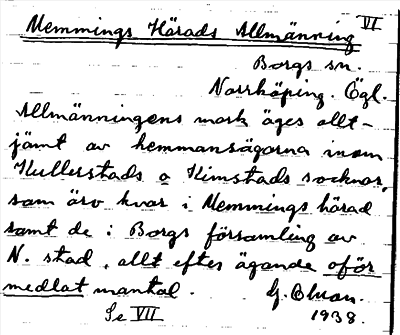 VI
Memmings Härads Allmänning
Borgs sn.
Norrköping. Ögl.
Allmänningens mark äges allt-
jämt av hemmansägarna inom
Kullerstads o Kimstads socknar,
som äro kvar i Memmings härad
samt de i Borgs församling av
N. stad, allt efter ägande oför
medlat mantal.
1938.
Se VII